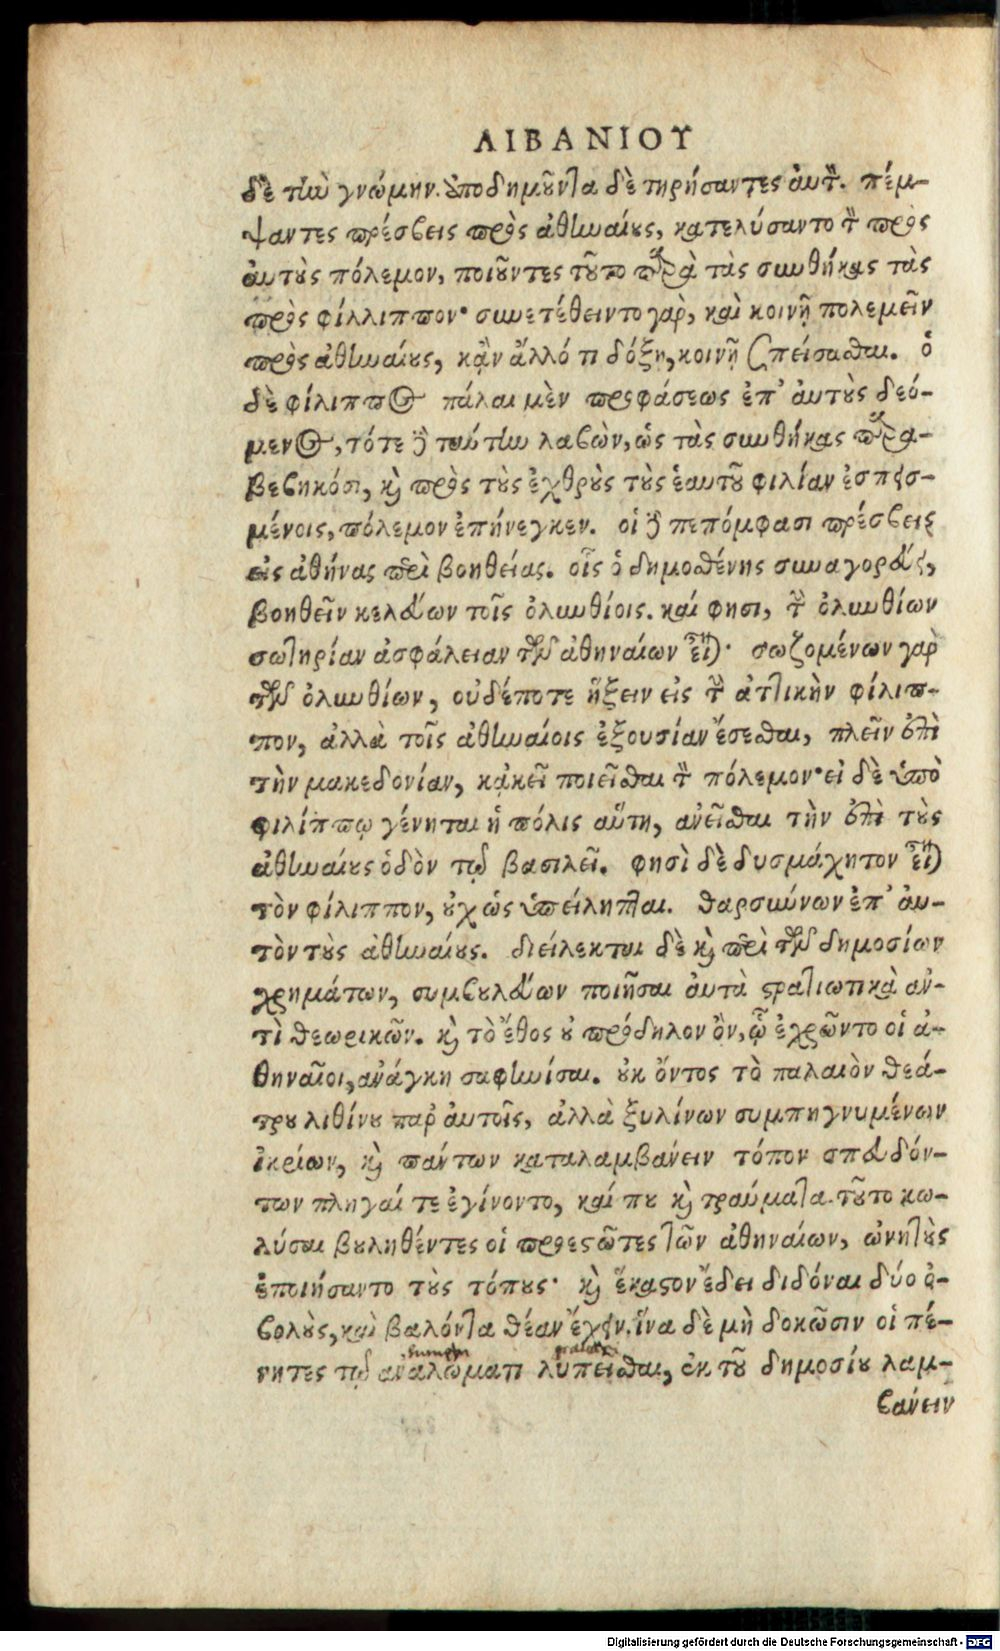 ΛΙΒΑΝΙΟΥ
δὲ τὴν γνώμην. ἀποδημοῦντα δὲ τηρήσαντες αὐτὸν. πέμ-
ψαντες πρέσβεις πρὸς ἀθηναίους, κατελύσαντο τὸν πρὸς
αὐτοὺς πόλεμον, ποιοῦντες τοῦτο παρὰ τὰς συνθήκας τὰς
πρὸς φίλλιππον· συνετέθειντο γὰρ, καὶ κοινῇ πολεμεῖν
πρὸς ἀθηναίους, κἂν ἄλλό τι δόξῃ, κοινῇ σπείσασθαι. ὁ
δὲ φίλιππος πάλαι μὲν προφάσεως ἐπ' αὐτοὺς δεό-
μενος, τότε δὲ ταύτην λαβὼν, ὡς τὰς συνθήκας παρα-
βεβηκόσι, καὶ πρὸς τοὺς ἐχθροὺς τοὺς ἑαυτοῦ φιλίαν ἐσπεισ-
μένοις, πόλεμον ἐπήνεγκεν. οἱ δὲ πεπόμφασι πρέσβεις
εἰς ἀθήνας περὶ βοηθείας. οἷς ὁ δημοσθένης συναγορεύει,
βοηθεῖν κελεύων τοῖς ὀλυνθίοις. καί φησι, τὴν ὀλυνθίων
σωτηρίαν ἀσφάλειαν τῶν ἀθηναίων εἶναι· σωζομένων γὰρ
τῶν ὀλυνθίων, οὐδέποτε ἥξειν εἰς τὴν ἀττικὴν φίλιπ-
πον, ἀλλὰ τοῖς ἀθηναίοις ἐξουσίαν ἔσεσθαι, πλεῖν ἐπὶ
τὴν μακεδονίαν, κἀκεῖ ποιεῖσθαι τὸν πόλεμον· εἰ δὲ ὑπὸ
φιλίππῳ γένηται ἡ πόλις αὕτη, ἀνεῖσθαι τὴν ἐπὶ τοὺς
ἀθηναίους ὁδὸν τῷ βασιλεῖ. φησὶ δὲ δυσμάχητον εἶναι
τὸν φίλιππον, οὐχ ὡς ὑπείληπται. θαρσύνων ἐπ' αὐ-
τὸν τοὺς ἀθηναίους. διείλεκται δὲ καὶ περὶ τῶν δημοσίων
χρημάτων, συμβουλεύων ποιῆσαι αὐτὰ στρατιωτικὰ ἀν-
τὶ θεωρικῶν. καὶ τὸ ἔθος οὐ πρόδηλον ὂν, ᾧ ἐχρῶντο οἱ ἀ-
θηναῖοι, ἀνάγκη σαφηνίσαι. οὐκ ὄντος τὸ παλαιὸν θεά-
τρου λιθίνου παρ' αὐτοῖς, ἀλλὰ ξυλίνων συμπηγνυμένων
ἰκρίων, καὶ πάντων καταλαμβάνειν τόπον σπευδόν-
των πληγαί τε ἐγίνοντο, καί που καὶ τραύματα. τοῦτο κω-
λύσαι βουληθέντες οἱ προεστῶτες τῶν ἀθηναίων, ὠνητοὺς
ἐποιήσαντο τοὺς τόπους· καὶ ἕκαστον ἔδει διδόναι δύο ὀ-
βολοὺς, καὶ βαλόντα θέαν ἔχειν. ἵνα δὲ μὴ δοκῶσιν οἱ πέ-
νητες τῷ ἀναλώματι λυπεῖσθαι, ἐκ τοῦ δημοσίου λαμ-
βάνειν
Digitalisierung gefördert durch die Deutsche Forschungsgemeinschaft - DFG